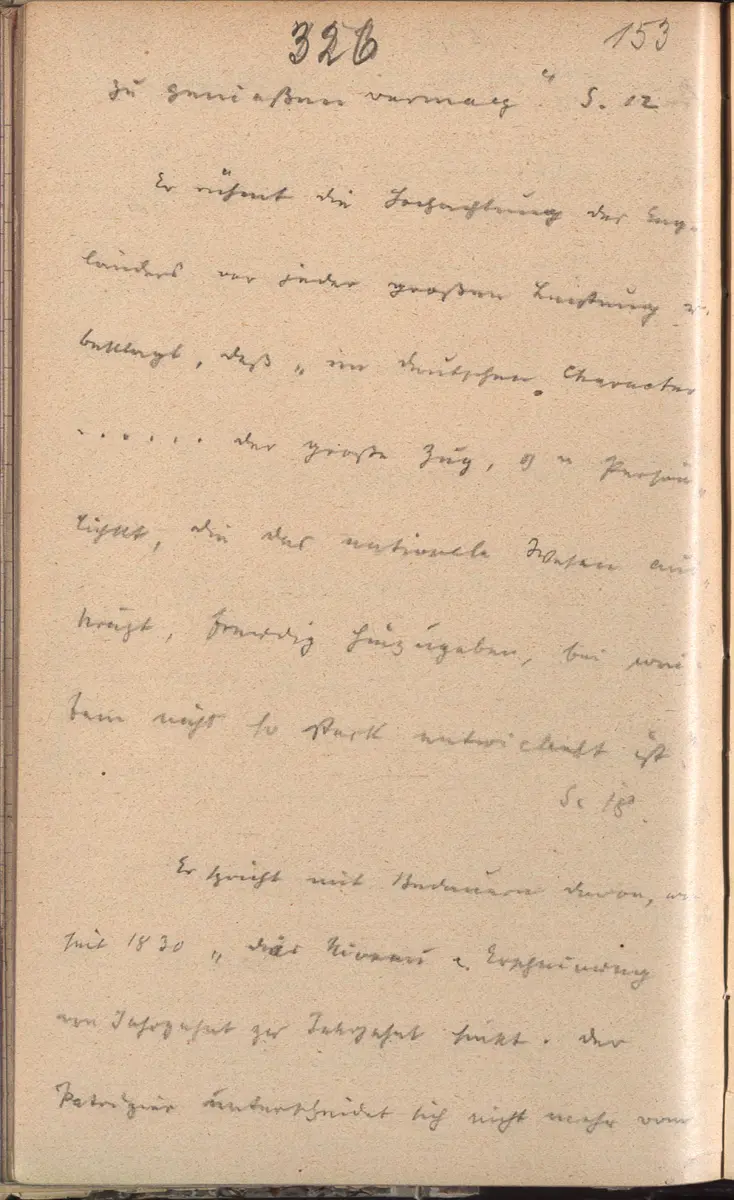 326 153
zu genießen vermag." S. 12
Er rühmt die Hochachtung des Eng-
länders vor jeder großen Leistung u.
beklagt, daß "im deutschen Character
. . . . . . der große Zug, e Persön-
lichkt, die das nationale Wesen aus-
prägt, freudig hinzugeben, bei wei-
tem nicht so stark entwickelt ist"
S. 18.
Er spricht mit Bedauern davon, wie
seit 1830 "das Niveau d. Erscheinung
von Jahrzehnt zu Jahrzehnt sinkt. Der
Patrizier unterscheidet sich nicht mehr vom